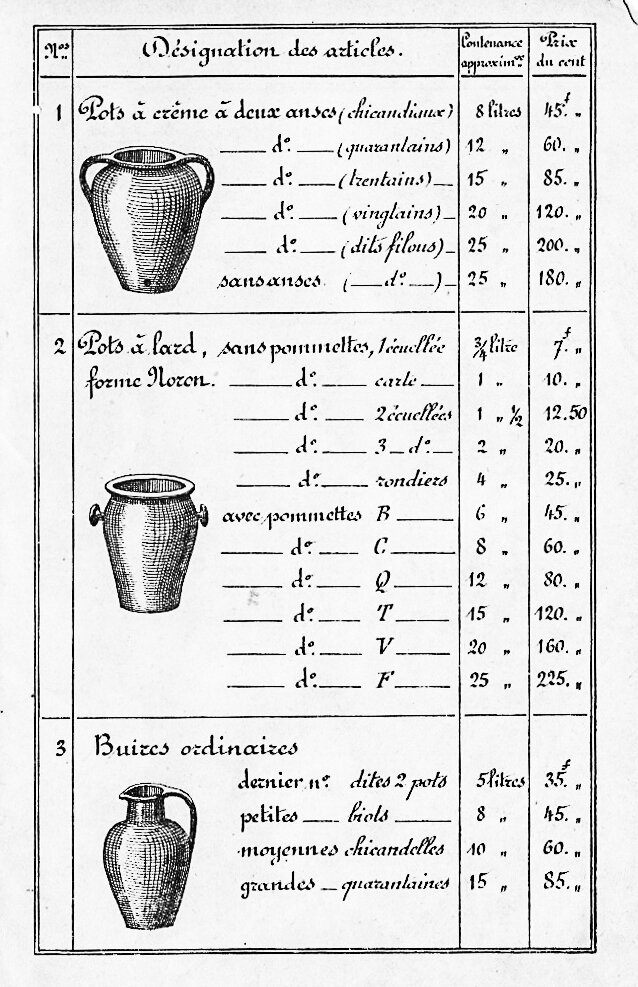 Nos Désignation des articles. Contenance approxim.ve Prix du cent
1 Pots à crême à deux anses (chicandiaux) 8 litres 45.f „
d°. (quarantains) 12 „ 60. „
d°. (trentains) 15 „ 85. „
d°. (vinglains) 20 „ 120. „
d°. (dits filous) 25 „ 200. „
sans anses. (d°.) 25 „ 180. „
2 Pots à lard, sans pommettes, 1 écuellée 3/4 litre 7.f „
forme Noron. d°. carte 1 „ 10. „
d°. 2 écuellées 1 „ 1/2 12.50
d°. 3 d°. 2 „ 20. „
d°. rondiers 4 „ 25. „
avec pommettes B 6 „ 45. „
d°. C 8 „ 60. „
d°. Q 12 „ 80. „
d°. T 15 „ 120. „
d°. V 20 „ 160. „
d°. F 25 „ 225. „
3 Buires ordinaires
dernier n°. dites 2 pots 5 litres 35.f „
petites biots 8 „ 45. „
moyennes chicandelles 10 „ 60. „
grandes quarantaines 15 „ 85. „